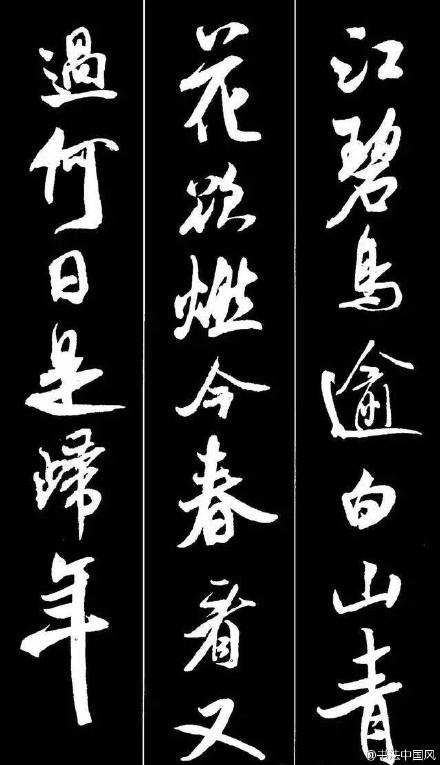 江碧鳥逾白山青
花欲燃今春看又
過何日是歸年
@书法中国风